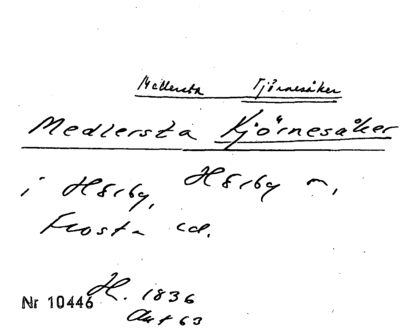 Mellersta Tjörnesåker
Medlersta Kjörnesåker
i Hörby, Hörby n,
Frosta cd.
Nr 10446 H. 1836
Akt 63